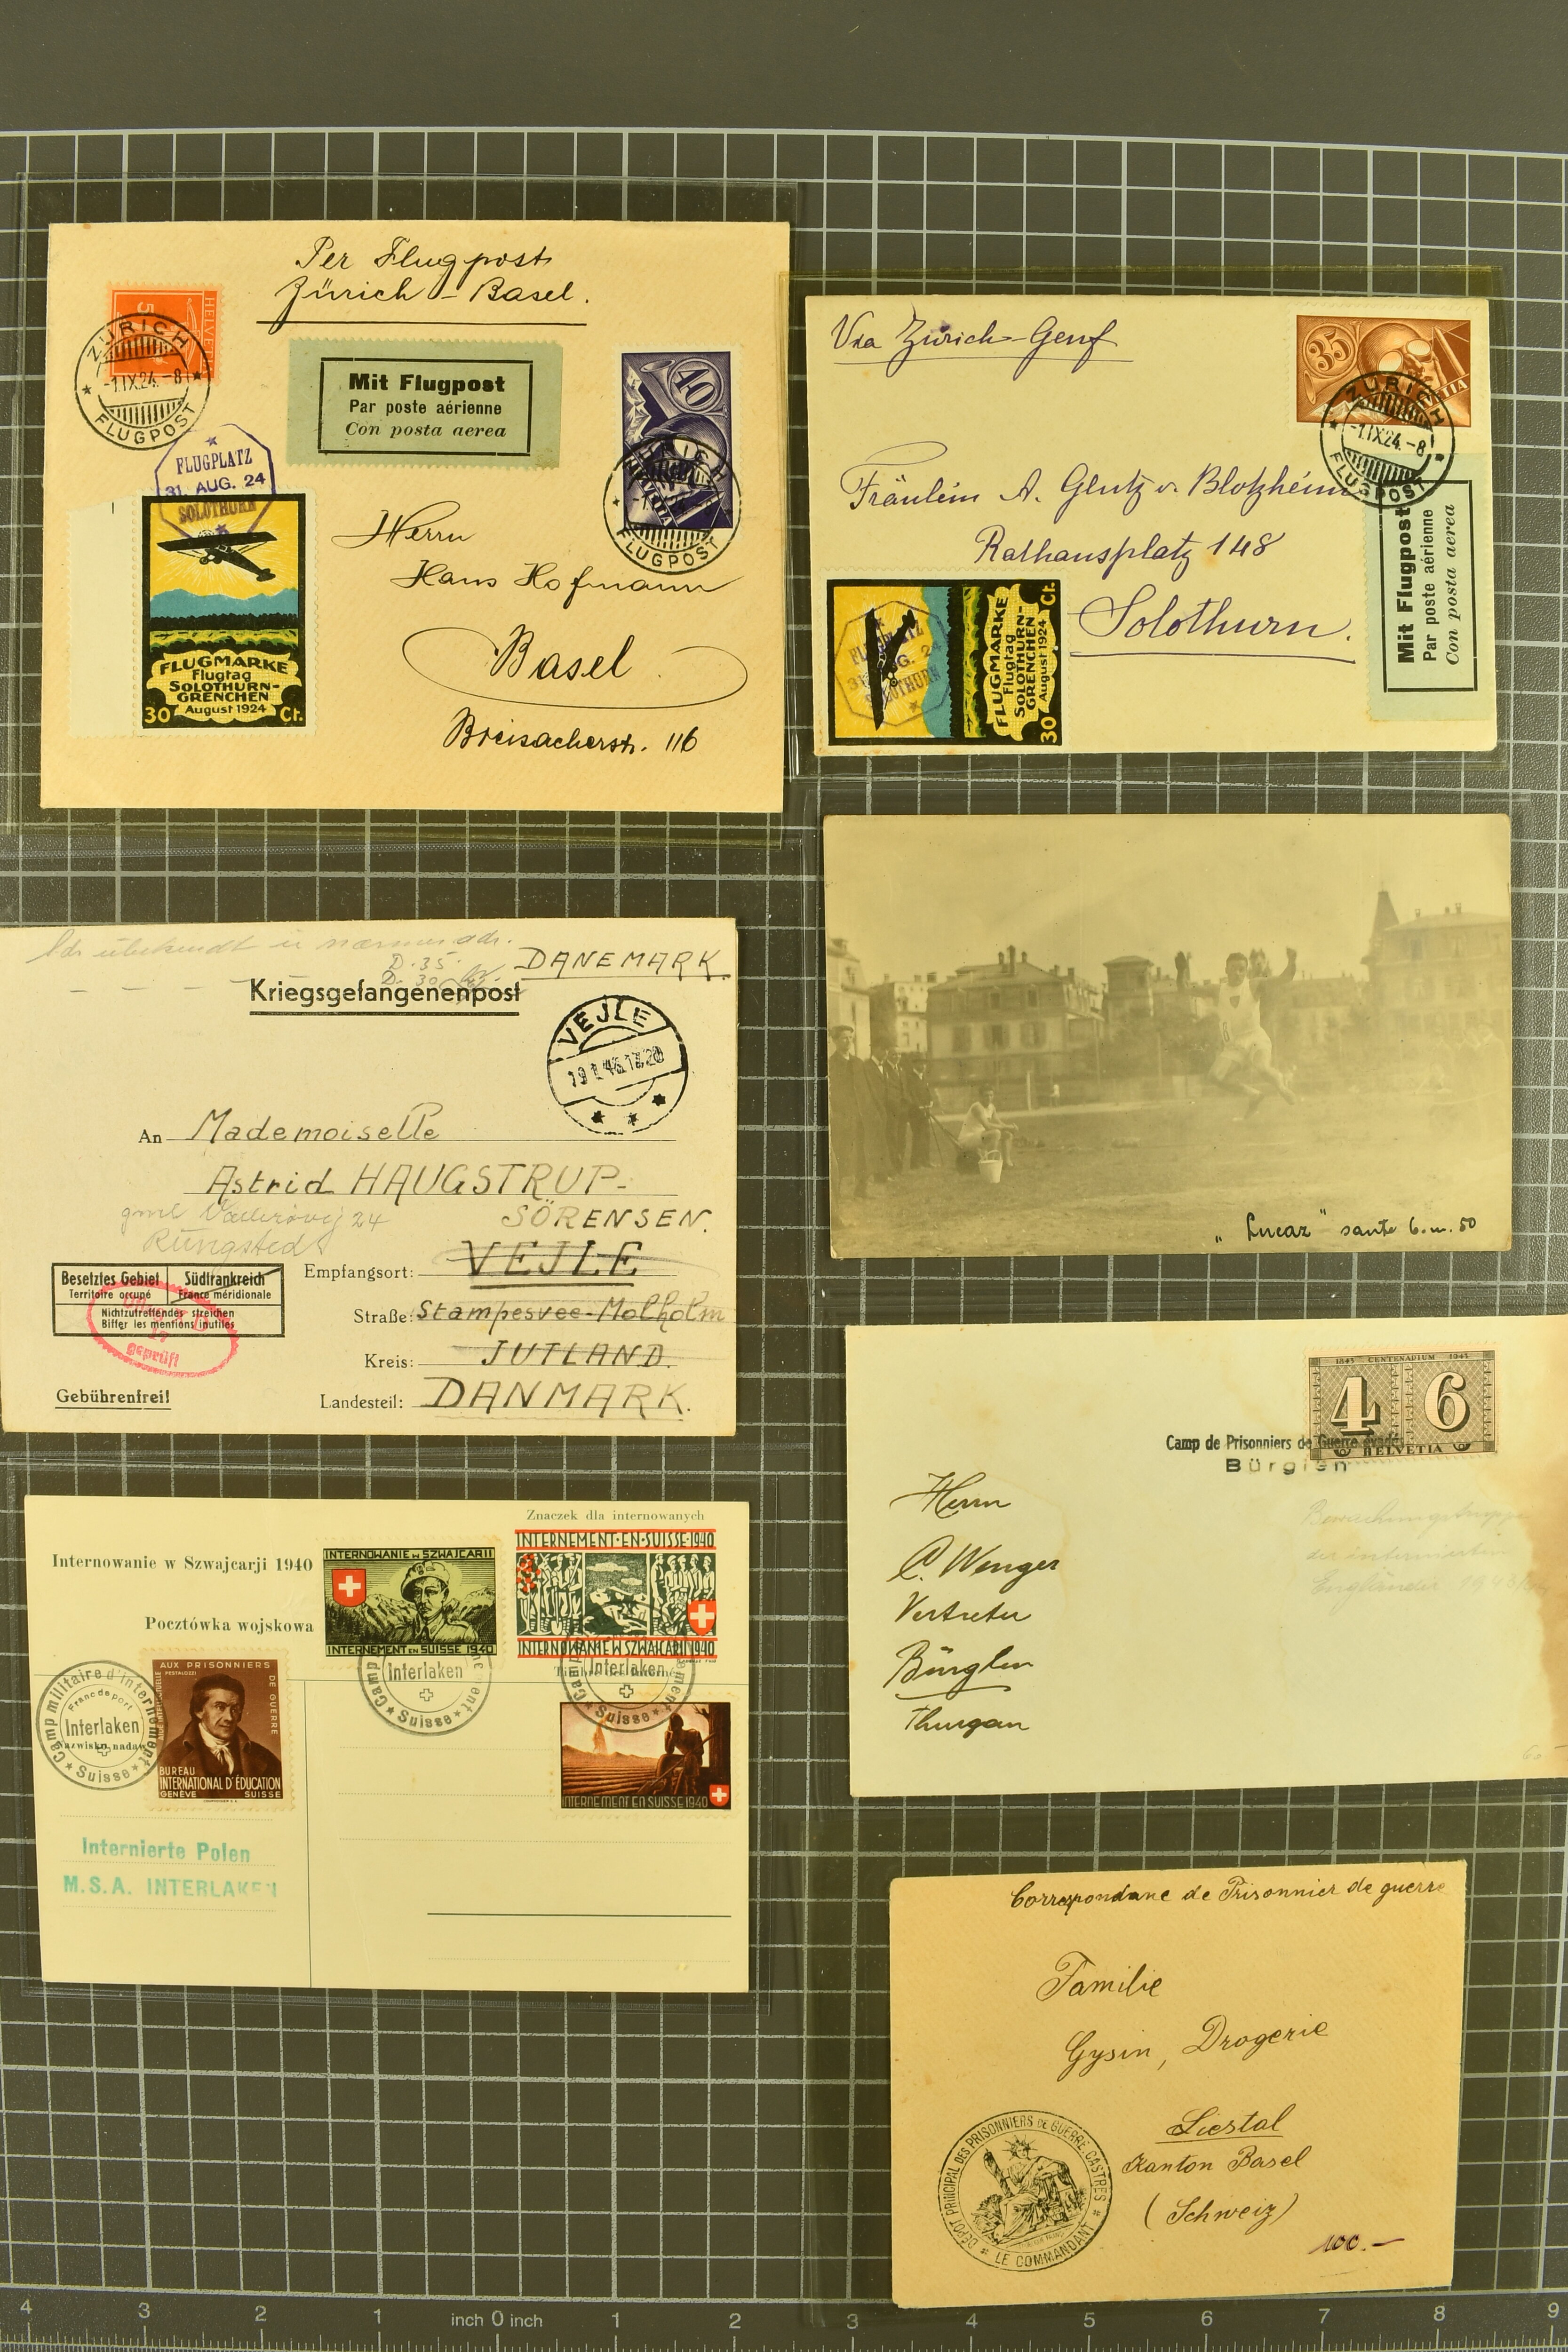 Per Flugpost
Zürich – Basel.
HELVETIA
5
ZÜRICH
-1.IX.24.-8
FLUGPOST
Mit Flugpost
Par poste aérienne
Con posta aerea
40
FLUGPOST
FLUGPLATZ
31. AUG. 24
SOLOTHURN
Herrn
Hans Hofmann
Basel
Breisacherstr. 116
FLUGMARKE
Flugtag
SOLOTHURN-
GRENCHEN
August 1924
30 Ct.
Via Zürich-Genf
35
ZÜRICH
-1.IX.24.-8
FLUGPOST
Fräulein A. Glutz v. Blotzheim
Rathausplatz 148
Solothurn.
Mit Flugpost
Par poste aérienne
Con posta aerea
FLUGMARKE
Flugtag
SOLOTHURN-
GRENCHEN
August 1924
30 Ct.
SOLOTHURN
"Lucaz" saute 6.m.50
DANEMARK.
D. 35.
D. 30
Kriegsgefangenenpost
VEJLE
An Mademoiselle
Astrid HAUGSTRUP-
SÖRENSEN.
24
Rungsted
Empfangsort: VEJLE
Straße: Stampesvee-Molholm
Kreis: JUTLAND.
Landesteil: DANMARK.
Besetztes Gebiet
Territoire occupé
Südfrankreich
France méridionale
Nichtzutreffendes streichen
Biffer les mentions inutiles
geprüft
Gebührenfrei!
1843 CENTENARIUM 1943
4 6
HELVETIA
Camp de Prisonniers de Guerre évadés
Bürglen
Herrn
C. Wenger
Vertreter
Bürglen
Thurgau
Bewachungstruppe
der internierten
Engländer
Znaczek dla internowanych
Internowanie w Szwajcarji 1940
Pocztówka wojskowa
INTERNOWANIE w SZWAJCARII
INTERNEMENT EN SUISSE 1940
INTERNEMENT·EN·SUISSE·1940
INTERNOWANIE W SZWAJCARII 1940
Camp militaire d'internement
Franc de port
Interlaken
Suisse
Interlaken
Suisse
Interlaken
Suisse
AUX PRISONNIERS
DE GUERRE
PESTALOZZI
BUREAU
INTERNATIONAL D'ÉDUCATION
GENÈVE SUISSE
INTERNEMENT EN SUISSE 1940
Internierte Polen
M.S.A. INTERLAKEN
Correspondane de Prisonnier de guerre
Familie
Gysin, Drogerie
Liestal
Kanton Basel
(Schweiz)
100.-
DÉPÔT PRINCIPAL DES PRISONNIERS DE GUERRE. CASTRES
LE COMMANDANT
4 3 2 1 inch 0 inch 1 2 3 4 5 6 7 8 9